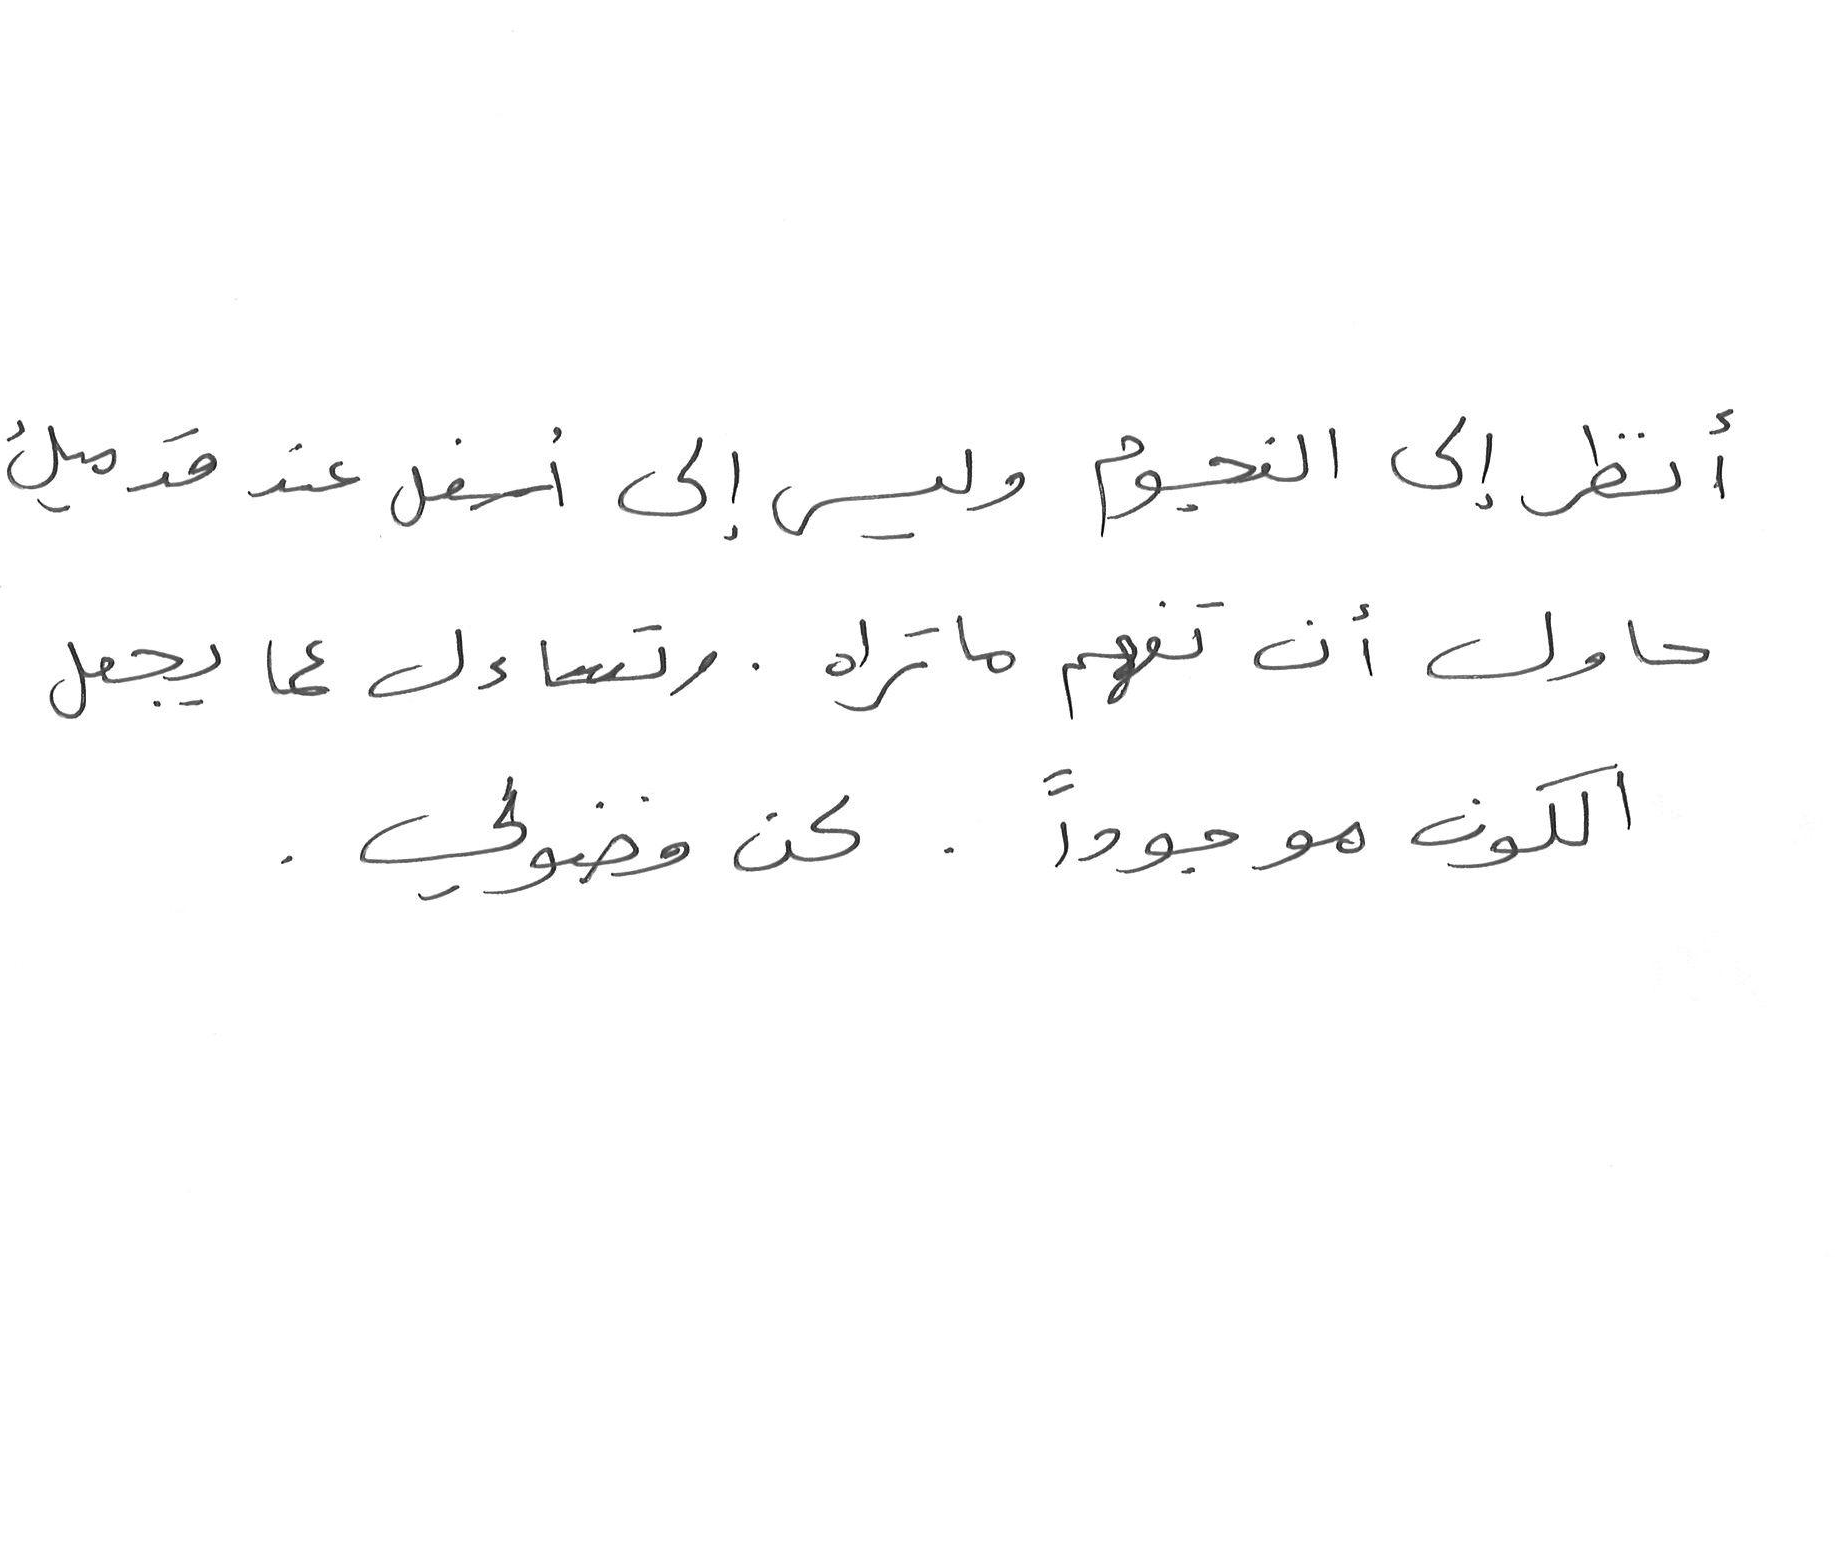 أنظر إلى النجوم وليس إلى أسفل عند قدميك
حاول أن تفهم ماتراه . وتساءل عما يجعل
الكون موجوداً . كن فضولي .